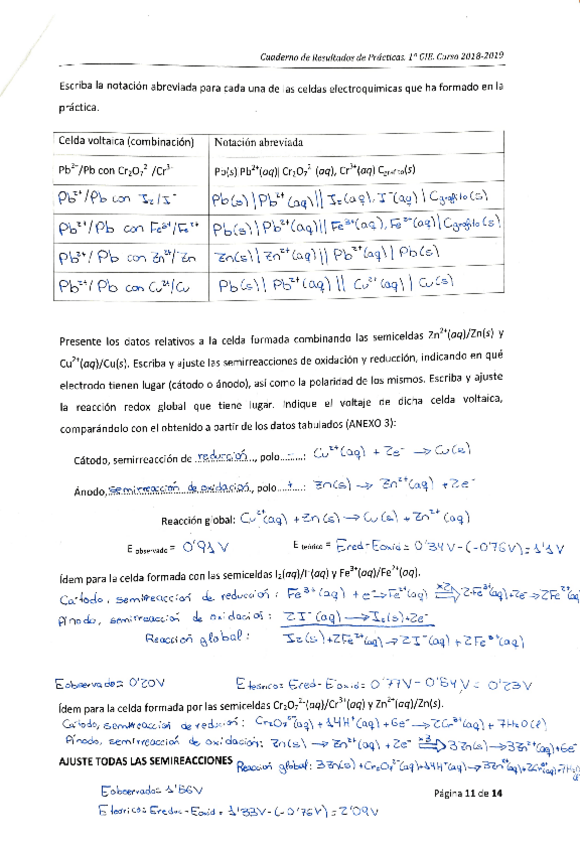 Cuaderno de Resultados de Prácticas. 1º GIE. Curso 2018-2019
Escriba la notación abreviada para cada una de las celdas electroquímicas que ha formado en la
práctica.
Celda voltaica (combinación) Notación abreviada
Pb²⁺/Pb con Cr₂O₇² /Cr³⁻ Pb(s) Pb²⁺(aq)| Cr₂O₇² (aq), Cr³⁺(aq) C_grafito(s)
Pb²⁺/Pb con I₂/I⁻ Pb(s)|Pb²⁺(aq)|| I₂(aq), I⁻(aq)| Cgrafito(s)
Pb²⁺/Pb con Fe³⁺/Fe²⁺ Pb(s)|Pb²⁺(aq)|| Fe³⁺(aq), Fe²⁺(aq)| Cgrafito(s)
Pb²⁺/Pb con Zn²⁺/Zn Zn(s)| Zn²⁺(aq)|| Pb²⁺(aq)| Pb(s)
Pb²⁺/Pb con Cu²⁺/Cu Pb(s)| Pb²⁺(aq)|| Cu²⁺(aq)| Cu(s)
Presente los datos relativos a la celda formada combinando las semiceldas Zn²⁺(aq)/Zn(s) y
Cu²⁺(aq)/Cu(s). Escriba y ajuste las semirreacciones de oxidación y reducción, indicando en qué
electrodo tienen lugar (cátodo o ánodo), así como la polaridad de los mismos. Escriba y ajuste
la reacción redox global que tiene lugar. Indique el voltaje de dicha celda voltaica,
comparándolo con el obtenido a partir de los datos tabulados (ANEXO 3):
Cátodo, semirreacción de reducción, polo......: Cu²⁺(aq) + 2e⁻ → Cu(s)
Ánodo, semirreacción de oxidación, polo...+...: Zn(s) → Zn²⁺(aq) + 2e⁻
Reacción global: Cu²⁺(aq) + Zn(s) → Cu(s) + Zn²⁺(aq)
E observado = 0'91V E teórico = Ered-Eoxid = 0'34V-(-0'76V) = 1'1V
Ídem para la celda formada con las semiceldas I₂(aq)/I⁻(aq) y Fe³⁺(aq)/Fe²⁺(aq).
Cátodo, semirreacción de reducción: Fe³⁺(aq) + e⁻→Fe²⁺(aq) x2⇒ 2Fe³⁺(aq)+2e⁻→2Fe²⁺(aq
Ánodo, semirreacción de oxidación: 2I⁻(aq) → I₂(s)+2e⁻
Reacción global: I₂(s)+2Fe²⁺(aq) → 2I⁻(aq) + 2Fe³⁺(aq)
Eobservado= 0'20V Eteórico= Ered-Eoxid= 0'77V-0'54V = 0'23V
Ídem para la celda formada por las semiceldas Cr₂O₇²⁻(aq)/Cr³⁺(aq) y Zn²⁺(aq)/Zn(s).
Cátodo, semirreacción de reducción: Cr₂O₇²⁻(aq) + 14H⁺(aq) + 6e⁻ → 2Cr³⁺(aq) + 7H₂O(l)
Ánodo, semirreacción de oxidación: Zn(s) → Zn²⁺(aq) + 2e⁻ x3⇒ 3Zn(s)→3Zn²⁺(aq)+6e⁻
AJUSTE TODAS LAS SEMIREACCIONES Reacción global: 3Zn(s)+Cr₂O₇²⁻(aq)+14H⁺(aq)→3Zn²⁺(aq)+2Cr³⁺(aq)+7H₂O
Eobservado= 1'56V Página 11 de 14
Eteórico= Ered-Eoxid = 1'33V-(-0'76V)=2'09V